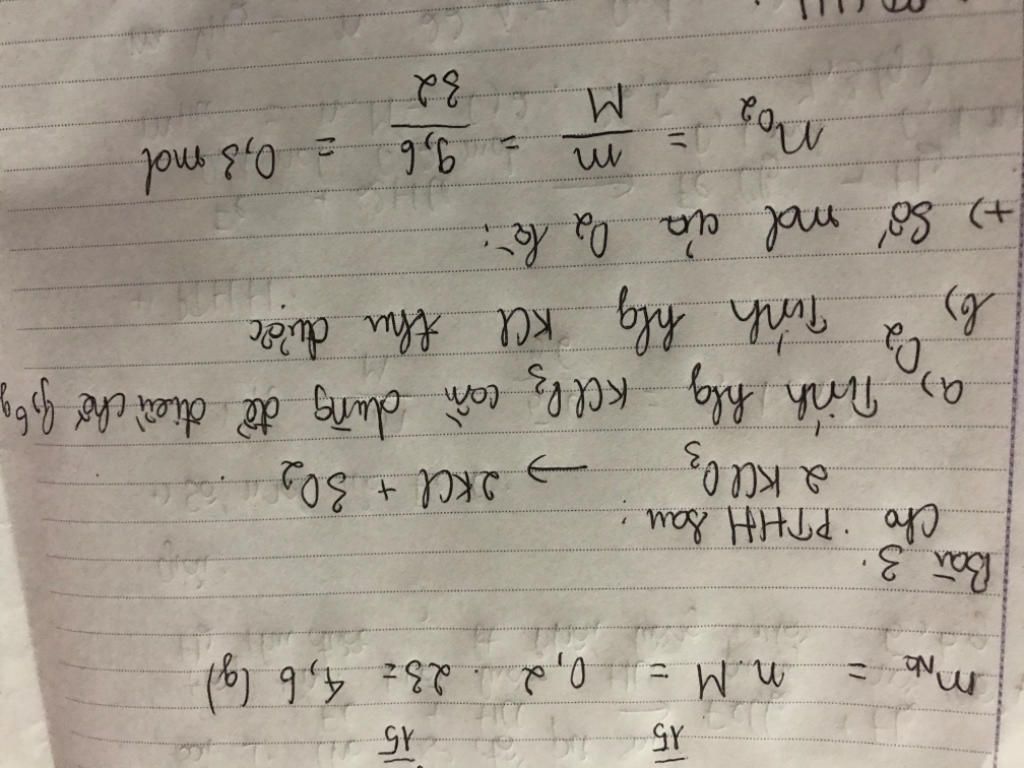 15 15
m Na = n.M = 0,2 . 23 = 4,6 (g)
Bài 3.
Cho PTHH sau:
2KClO3 → 2KCl + 3O2
a) Tính klg KClO3 cần dùng để điều chế 9,6g
O2
b) Tính klg KCl thu được
+) Số mol của O2 là:
nO2 = m/M = 9,6/32 = 0,3 mol